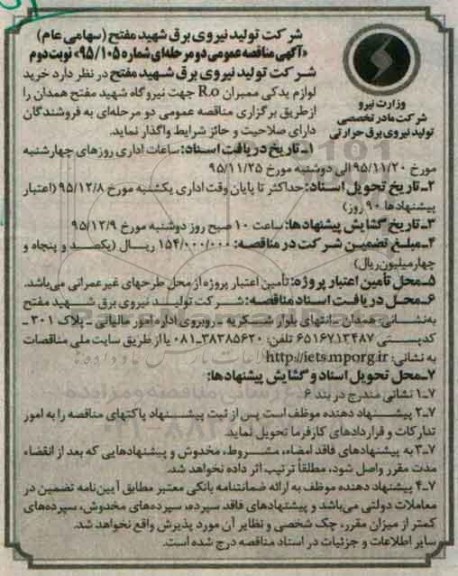 شرکت تولید نیروی برق شهید مفتح (سهامی عام)
«آگهی مناقصه عمومی دو مرحله‌ای شماره ۹۵/۱۰۵» نوبت دوم
شرکت تولید نیروی برق شهید مفتح در نظر دارد خرید
لوازم یدکی ممبران R.o جهت نیروگاه شهید مفتح همدان را
ازطریق برگزاری مناقصه عمومی دو مرحله‌ای به فروشندگان
دارای صلاحیت و حائز شرایط واگذار نماید.
وزارت نیرو
شرکت مادر تخصصی
تولید نیروی برق حرارتی
۱ـ تاریخ دریافت اسناد: ساعات اداری روزهای چهارشنبه
مورخ ۹۵/۱۱/۲۰ الی دوشنبه مورخ ۹۵/۱۱/۲۵
۲ـ تاریخ تحویل اسناد: حداکثر تا پایان وقت اداری یکشنبه مورخ ۹۵/۱۲/۸ (اعتبار
پیشنهادها ۹۰ روز)
۳ـ تاریخ گشایش پیشنهادها: ساعت ۱۰ صبح روز دوشنبه مورخ ۹۵/۱۲/۹
۴ـ مبلغ تضمین شرکت در مناقصه: ۱۵۴/۰۰۰/۰۰۰ ریال (یکصد و پنجاه و
چهارمیلیون ریال)
۵ـ محل تأمین اعتبار پروژه: تأمین اعتبار پروژه از محل طرحهای غیرعمرانی می‌باشد.
۶ـ محل دریافت اسناد مناقصه: شرکت تولید نیروی برق شهید مفتح
به‌نشانی: همدان ـ انتهای بلوار شکریه ـ روبروی اداره امور مالیاتی ـ پلاک ۳۰۱ ـ
کدپستی ۶۵۱۶۷۱۳۴۸۷ تلفن: ۳۸۳۸۵۶۲۰-۰۸۱ یا از طریق سایت ملی مناقصات
به نشانی: http://iets.mporg.ir
۷ـ محل تحویل اسناد و گشایش پیشنهادها:
۷ـ۱ نشانی مندرج در بند ۶
۷ـ۲ پیشنهاد دهنده موظف است پس از ثبت پیشنهاد پاکتهای مناقصه را به امور
تدارکات و قراردادهای کارفرما تحویل نماید.
۷ـ۳ به پیشنهادهای فاقد امضاء، مشروط، مخدوش و پیشنهادهایی که بعد از انقضاء
مدت مقرر واصل شود، مطلقاً ترتیب اثر داده نخواهد شد.
۷ـ۴ پیشنهاد دهنده موظف به ارائه ضمانتنامه بانکی معتبر مطابق آیین‌نامه تضمین در
معاملات دولتی می‌باشد و پیشنهادهای فاقد سپرده، سپرده‌های مخدوش، سپرده‌های
کمتر از میزان مقرر، چک شخصی و نظایر آن مورد پذیرش واقع نخواهد شد.
سایر اطلاعات و جزئیات در اسناد مناقصه درج شده است.